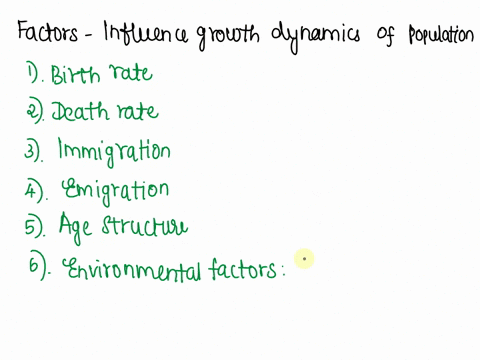 Factors - Influence growth dynamics of population
1). Birth rate
2). Death rate
3). Immigration
4). Emigration
5). Age structure
6). Environmental factors: